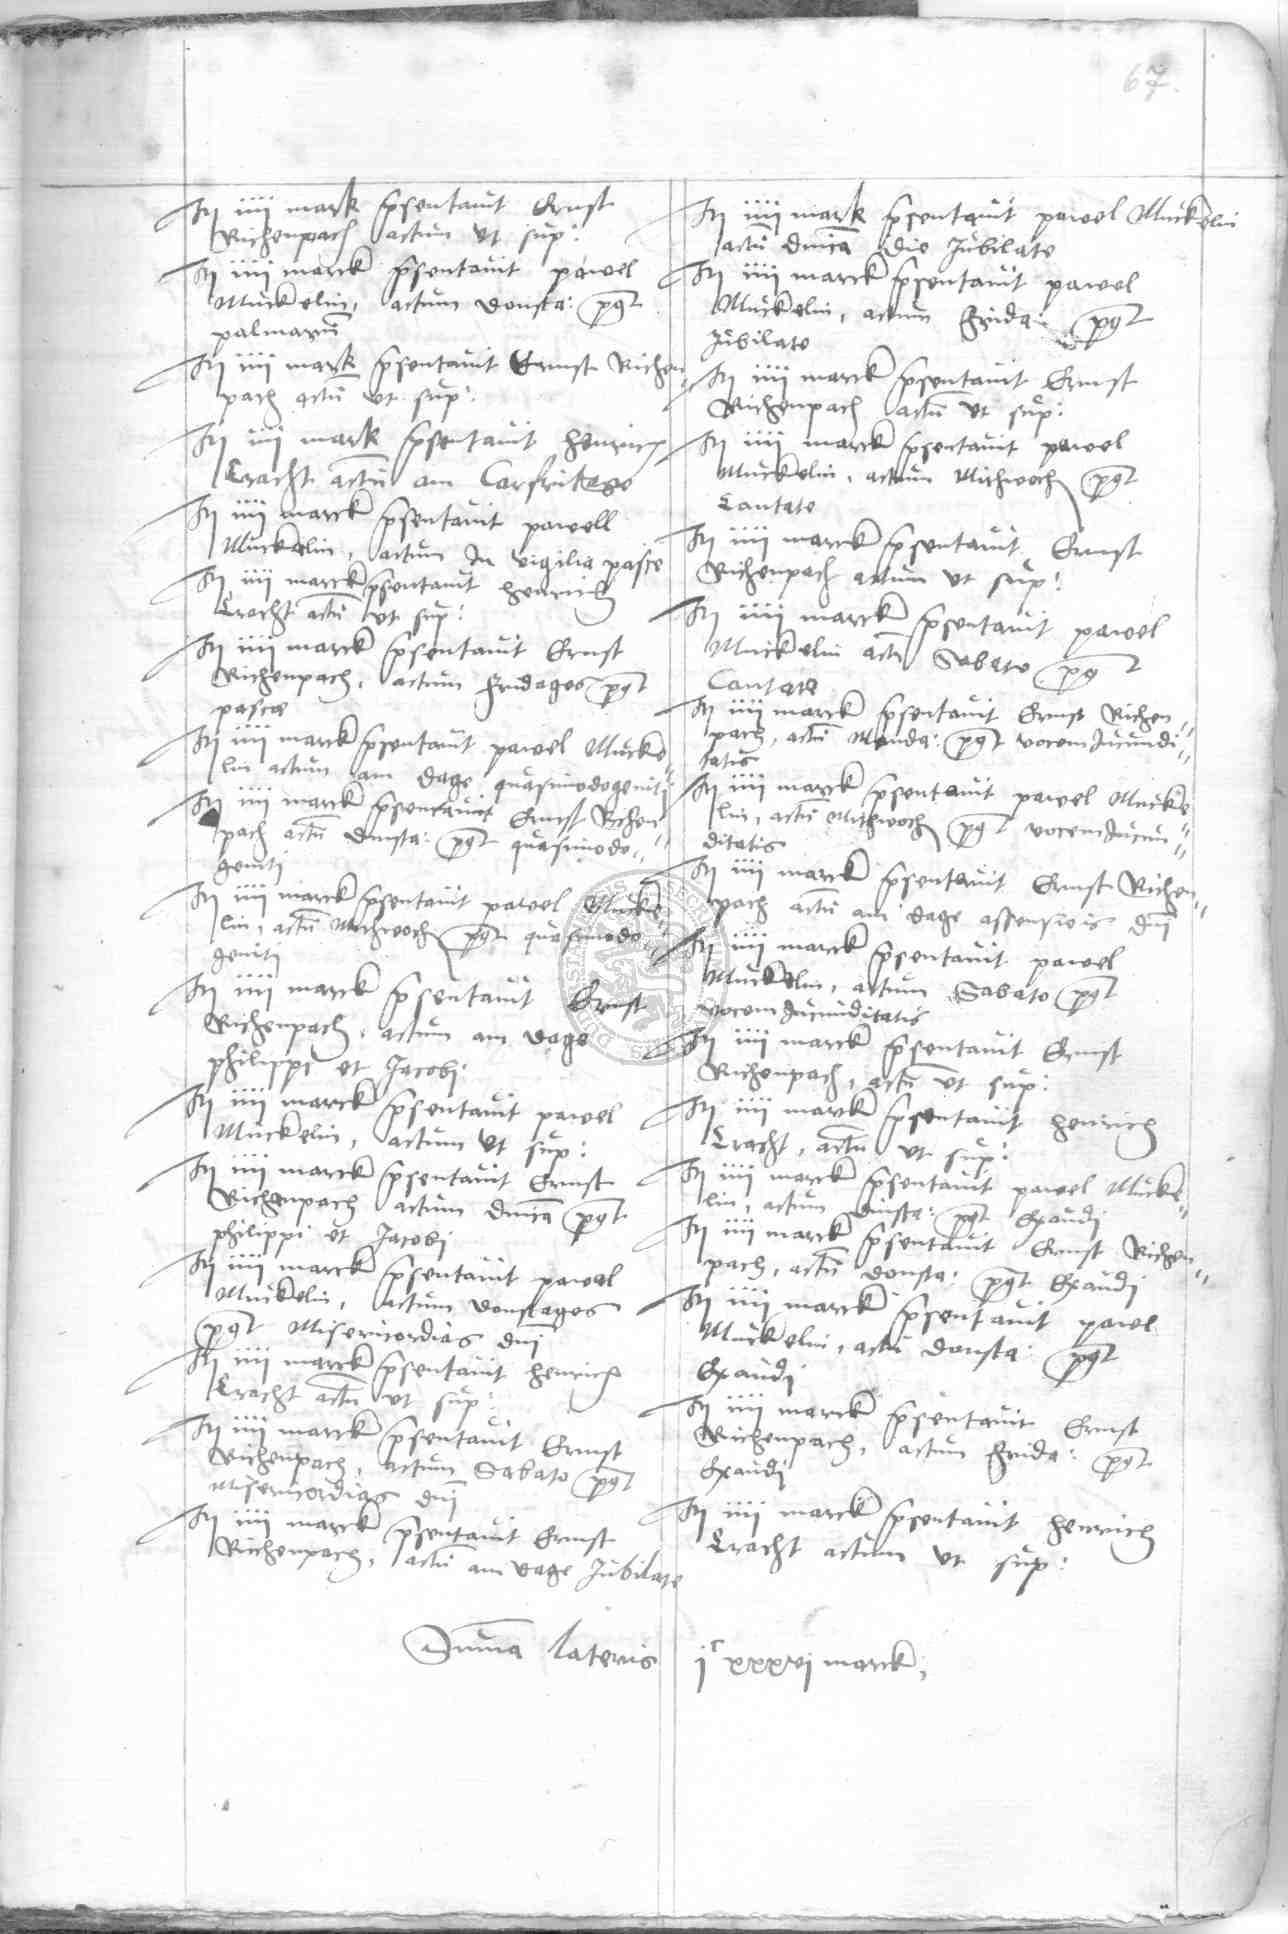 67.
Itj iiij mark psentauit Ernst
Richenpach actum ut sup:
Itj iiij marck psentauit pawel
Muckelin, actum donsta: pqt
palmarū
Itj iiij mark psentauit Ernst Richen„
pach actū ut sup:
Itj iiij mark psentauit henrich
Cracht actū am Carfritage
Itj iiij marck psentauit pawell
Muckelin, actum In vigilia pasce
Itj iiij marck psentauit henrich
Cracht actū ut sup:
Itj iiij marck psentauit Ernst
Richenpach, actum fridages pqt
pasce
Itj iiij marck psentauit pawel Mucke„
lin actum am dage quasimodogeniti
Itj iiij marck psentauit Ernst Richen„
pach actū dinsta: pqt quasimodo„
geniti
Itj iiij marck psentauit pawel Mucke„
lin, actū Mithwoch pqt quasimodo„
geniti
Itj iiij marck psentauit Ernst
Richenpach, actum am dage
philippi et Jacobj
Itj iiij marck psentauit pawel
Muckelin, actum ut sup:
Itj iiij marck psentauit Ernst
Richenpach actum dnica pqt
philippi et Jacobj
Itj iiij marck psentauit pawel
Muckelin, actum donstages
pqt Misericordias dnī
Itj iiij marck psentauit henrich
Cracht actū ut sup:
Itj iiij marck psentauit Ernst
Richenpach, actum Sabato pqt
Misericordias dnī
Itj iiij marck psentauit Ernst
Richenpach, actū am dage Jubilate
Itj iiij mark psentauit pawel Muckelin
actū dnica die Jubilate
Itj iiij marck psentauit pawel
Muckelin, actum frida: pqt
Jubilate
Itj iiij marck psentauit Ernst
Richenpach actū ut sup:
Itj iiij marck psentauit pawel
Muckelin, actum Mithwoch pqt
Cantate
Itj iiij marck psentauit Ernst
Richenpach actum ut sup:
Itj iiij marck psentauit pawel
Muckelin actū Sabato pqt
Cantate
Itj iiij marck psentauit Ernst Richen„
pach, actū Manda: pqt vocem Jucundi„
tatis
Itj iiij marck psentauit pawel Mucke„
lin, actū Mithwoch pqt vocem Jucun„
ditatis
Itj iiij marck psentauit Ernst Richen„
pach actū am dage assensiois dnī
Itj iiij marck psentauit pawel
Muckelin, actum Sabato pqt
vocem Jucunditatis
Itj iiij marck psentauit Ernst
Richenpach, actū ut sup:
Itj iiij marck psentauit henrich
Cracht, actū ut sup:
Itj iiij marck psentauit pawel Mucke„
lin, actum dinsta: pqt Exaudj
Itj iiij marck psentauit Ernst Richen„
pach, actū donsta: pqt Exaudj
Itj iiij marck psentauit pawel
Muckelin, actū donsta: pqt
Exaudj
Itj iiij marck psentauit Ernst
Richenpach, actum frida: pqt
Exaudj
Itj iiij marck psentauit henrich
Cracht actum ut sup:
Suma lateris jc xxxvj marck,